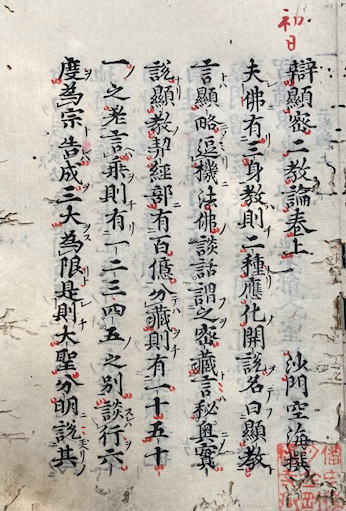 初日
辯顯密二教論卷上　沙門空海撰
夫佛有三身教則二種應化開說名曰顯教
言顯略逗機法佛談話謂之密藏言秘奧實
說顯教契經部有百億分藏則有一十五十
一之差言乘則有一二三四五之別談行六
度為宗告成三大為限是則大聖分明說其